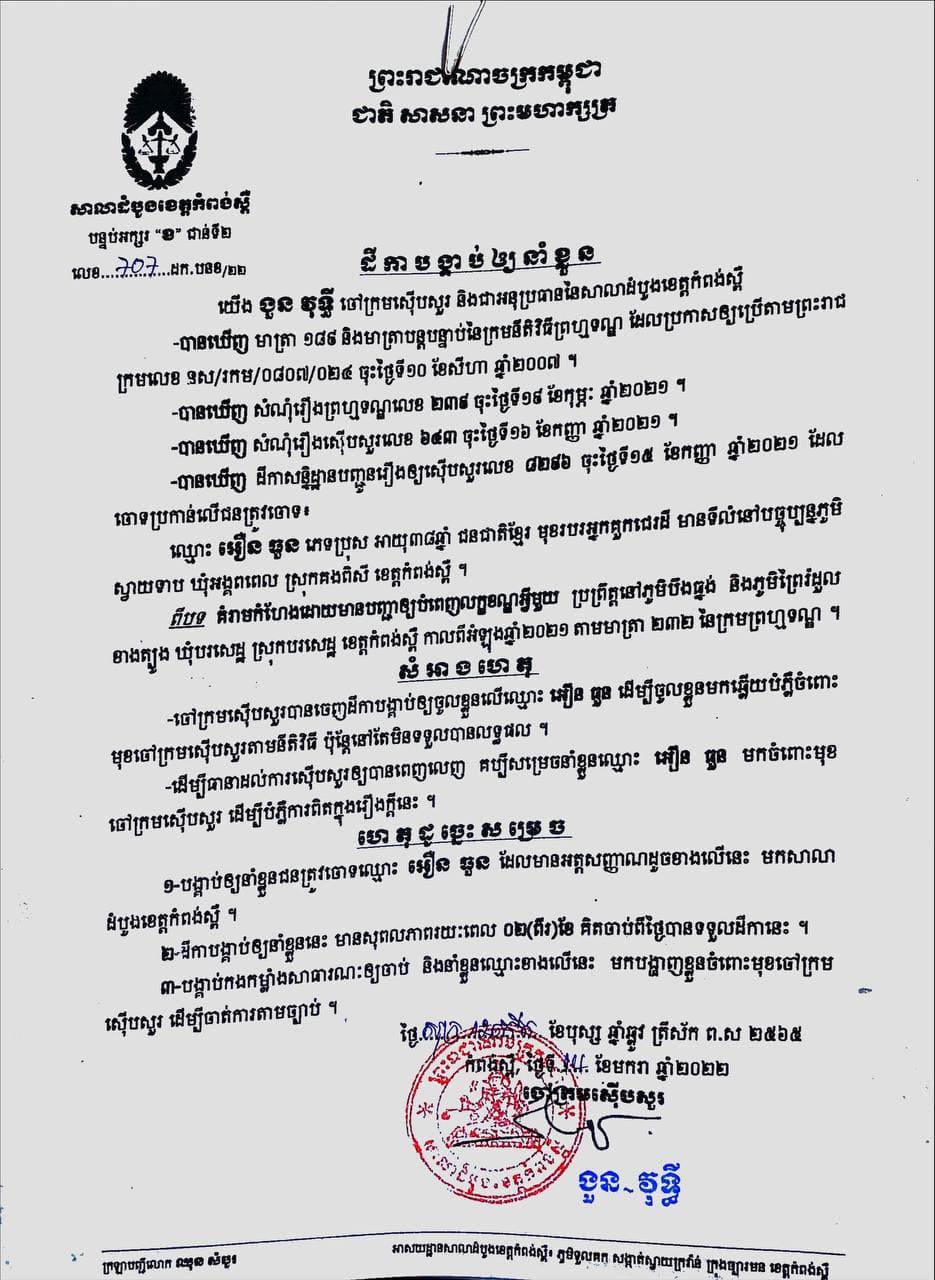 ព្រះរាជាណាចក្រកម្ពុជា
ជាតិ សាសនា ព្រះមហាក្សត្រ
សាលាដំបូងខេត្តកំពង់ស្ពឺ
បន្ទប់អក្សរ “ខ” ជាន់ទី២
លេខ...707...ដក.បនខ/២២
ដីកាបង្គាប់ឲ្យនាំខ្លួន
យើង ងួន វុទ្ធី ចៅក្រមស៊ើបសួរ និងជាអនុប្រធាននៃសាលាដំបូងខេត្តកំពង់ស្ពឺ
-បានឃើញ មាត្រា ១៨៩ និងមាត្រាបន្តបន្ទាប់នៃក្រមនីតិវិធីព្រហ្មទណ្ឌ ដែលប្រកាសឲ្យប្រើតាមព្រះរាជ
ក្រមលេខ នស/រកម/០៨០៧/០២៤ ចុះថ្ងៃទី១០ ខែសីហា ឆ្នាំ២០០៧ ។
-បានឃើញ សំណុំរឿងព្រហ្មទណ្ឌលេខ ២៣៩ ចុះថ្ងៃទី១៩ ខែកុម្ភៈ ឆ្នាំ២០២១ ។
-បានឃើញ សំណុំរឿងស៊ើបសួរលេខ ៦៤៣ ចុះថ្ងៃទី១៦ ខែកញ្ញា ឆ្នាំ២០២១ ។
-បានឃើញ ដីកាសន្និដ្ឋានបញ្ជូនរឿងឲ្យស៊ើបសួរលេខ ៨២៩៦ ចុះថ្ងៃទី១៥ ខែកញ្ញា ឆ្នាំ២០២១ ដែល
ចោទប្រកាន់លើជនត្រូវចោទ៖
ឈ្មោះ អឿន ធួន ភេទប្រុស អាយុ៣៨ឆ្នាំ ជនជាតិខ្មែរ មុខរបរអ្នកគួកជេរដី មានទីលំនៅបច្ចុប្បន្នភូមិ
ស្វាយទាប ឃុំអង្គពពេល ស្រុកគងពិសី ខេត្តកំពង់ស្ពឺ ។
ពីបទ គំរាមកំហែងដោយមានបញ្ជាឲ្យបំពេញលក្ខខណ្ឌអ្វីមួយ ប្រព្រឹត្តនៅភូមិបឹងធ្នង់ និងភូមិព្រៃរំដួល
ខាងត្បូង ឃុំបរសេដ្ឋ ស្រុកបរសេដ្ឋ ខេត្តកំពង់ស្ពឺ កាលពីអំឡុងឆ្នាំ២០២១ តាមមាត្រា ២៣២ នៃក្រមព្រហ្មទណ្ឌ ។
សំអាងហេតុ
-ចៅក្រមស៊ើបសួរបានចេញដីកាបង្គាប់ឲ្យចូលខ្លួនលើឈ្មោះ អឿន ធួន ដើម្បីចូលខ្លួនមកឆ្លើយបំភ្លឺចំពោះ
មុខចៅក្រមស៊ើបសួរតាមនីតិវិធី ប៉ុន្តែនៅតែមិនទទួលបានលទ្ធផល ។
-ដើម្បីធានាដល់ការស៊ើបសួរឲ្យបានពេញលេញ គប្បីសម្រេចនាំខ្លួនឈ្មោះ អឿន ធួន មកចំពោះមុខ
ចៅក្រមស៊ើបសួរ ដើម្បីបំភ្លឺការពិតក្នុងរឿងក្តីនេះ ។
ហេតុដូច្នេះសម្រេច
១-បង្គាប់ឲ្យនាំខ្លួនជនត្រូវចោទឈ្មោះ អឿន ធួន ដែលមានអត្តសញ្ញាណដូចខាងលើនេះ មកសាលា
ដំបូងខេត្តកំពង់ស្ពឺ ។
២-ដីកាបង្គាប់ឲ្យនាំខ្លួននេះ មានសុពលភាពរយៈពេល ០២(ពីរ)ខែ គិតចាប់ពីថ្ងៃបានទទួលដីកានេះ ។
៣-បង្គាប់កងកម្លាំងសាធារណៈឲ្យចាប់ និងនាំខ្លួនឈ្មោះខាងលើនេះ មកបង្ហាញខ្លួនចំពោះមុខចៅក្រម
ស៊ើបសួរ ដើម្បីចាត់ការតាមច្បាប់ ។
ថ្ងៃ ខែបុស្ស ឆ្នាំឆ្លូវ ត្រីស័ក ព.ស ២៥៦៥
កំពង់ស្ពឺ, ថ្ងៃទី ខែមករា ឆ្នាំ២០២២
ចៅក្រមស៊ើបសួរ
ងួន-វុទ្ធី
ក្រឡាបញ្ជីលោក ឈុន សំបូរ
អាសយដ្ឋានសាលាដំបូងខេត្តកំពង់ស្ពឺ៖ ភូមិទួលគក សង្កាត់ស្វាយក្រវ៉ាន់ ក្រុងច្បារមន ខេត្តកំពង់ស្ពឺ